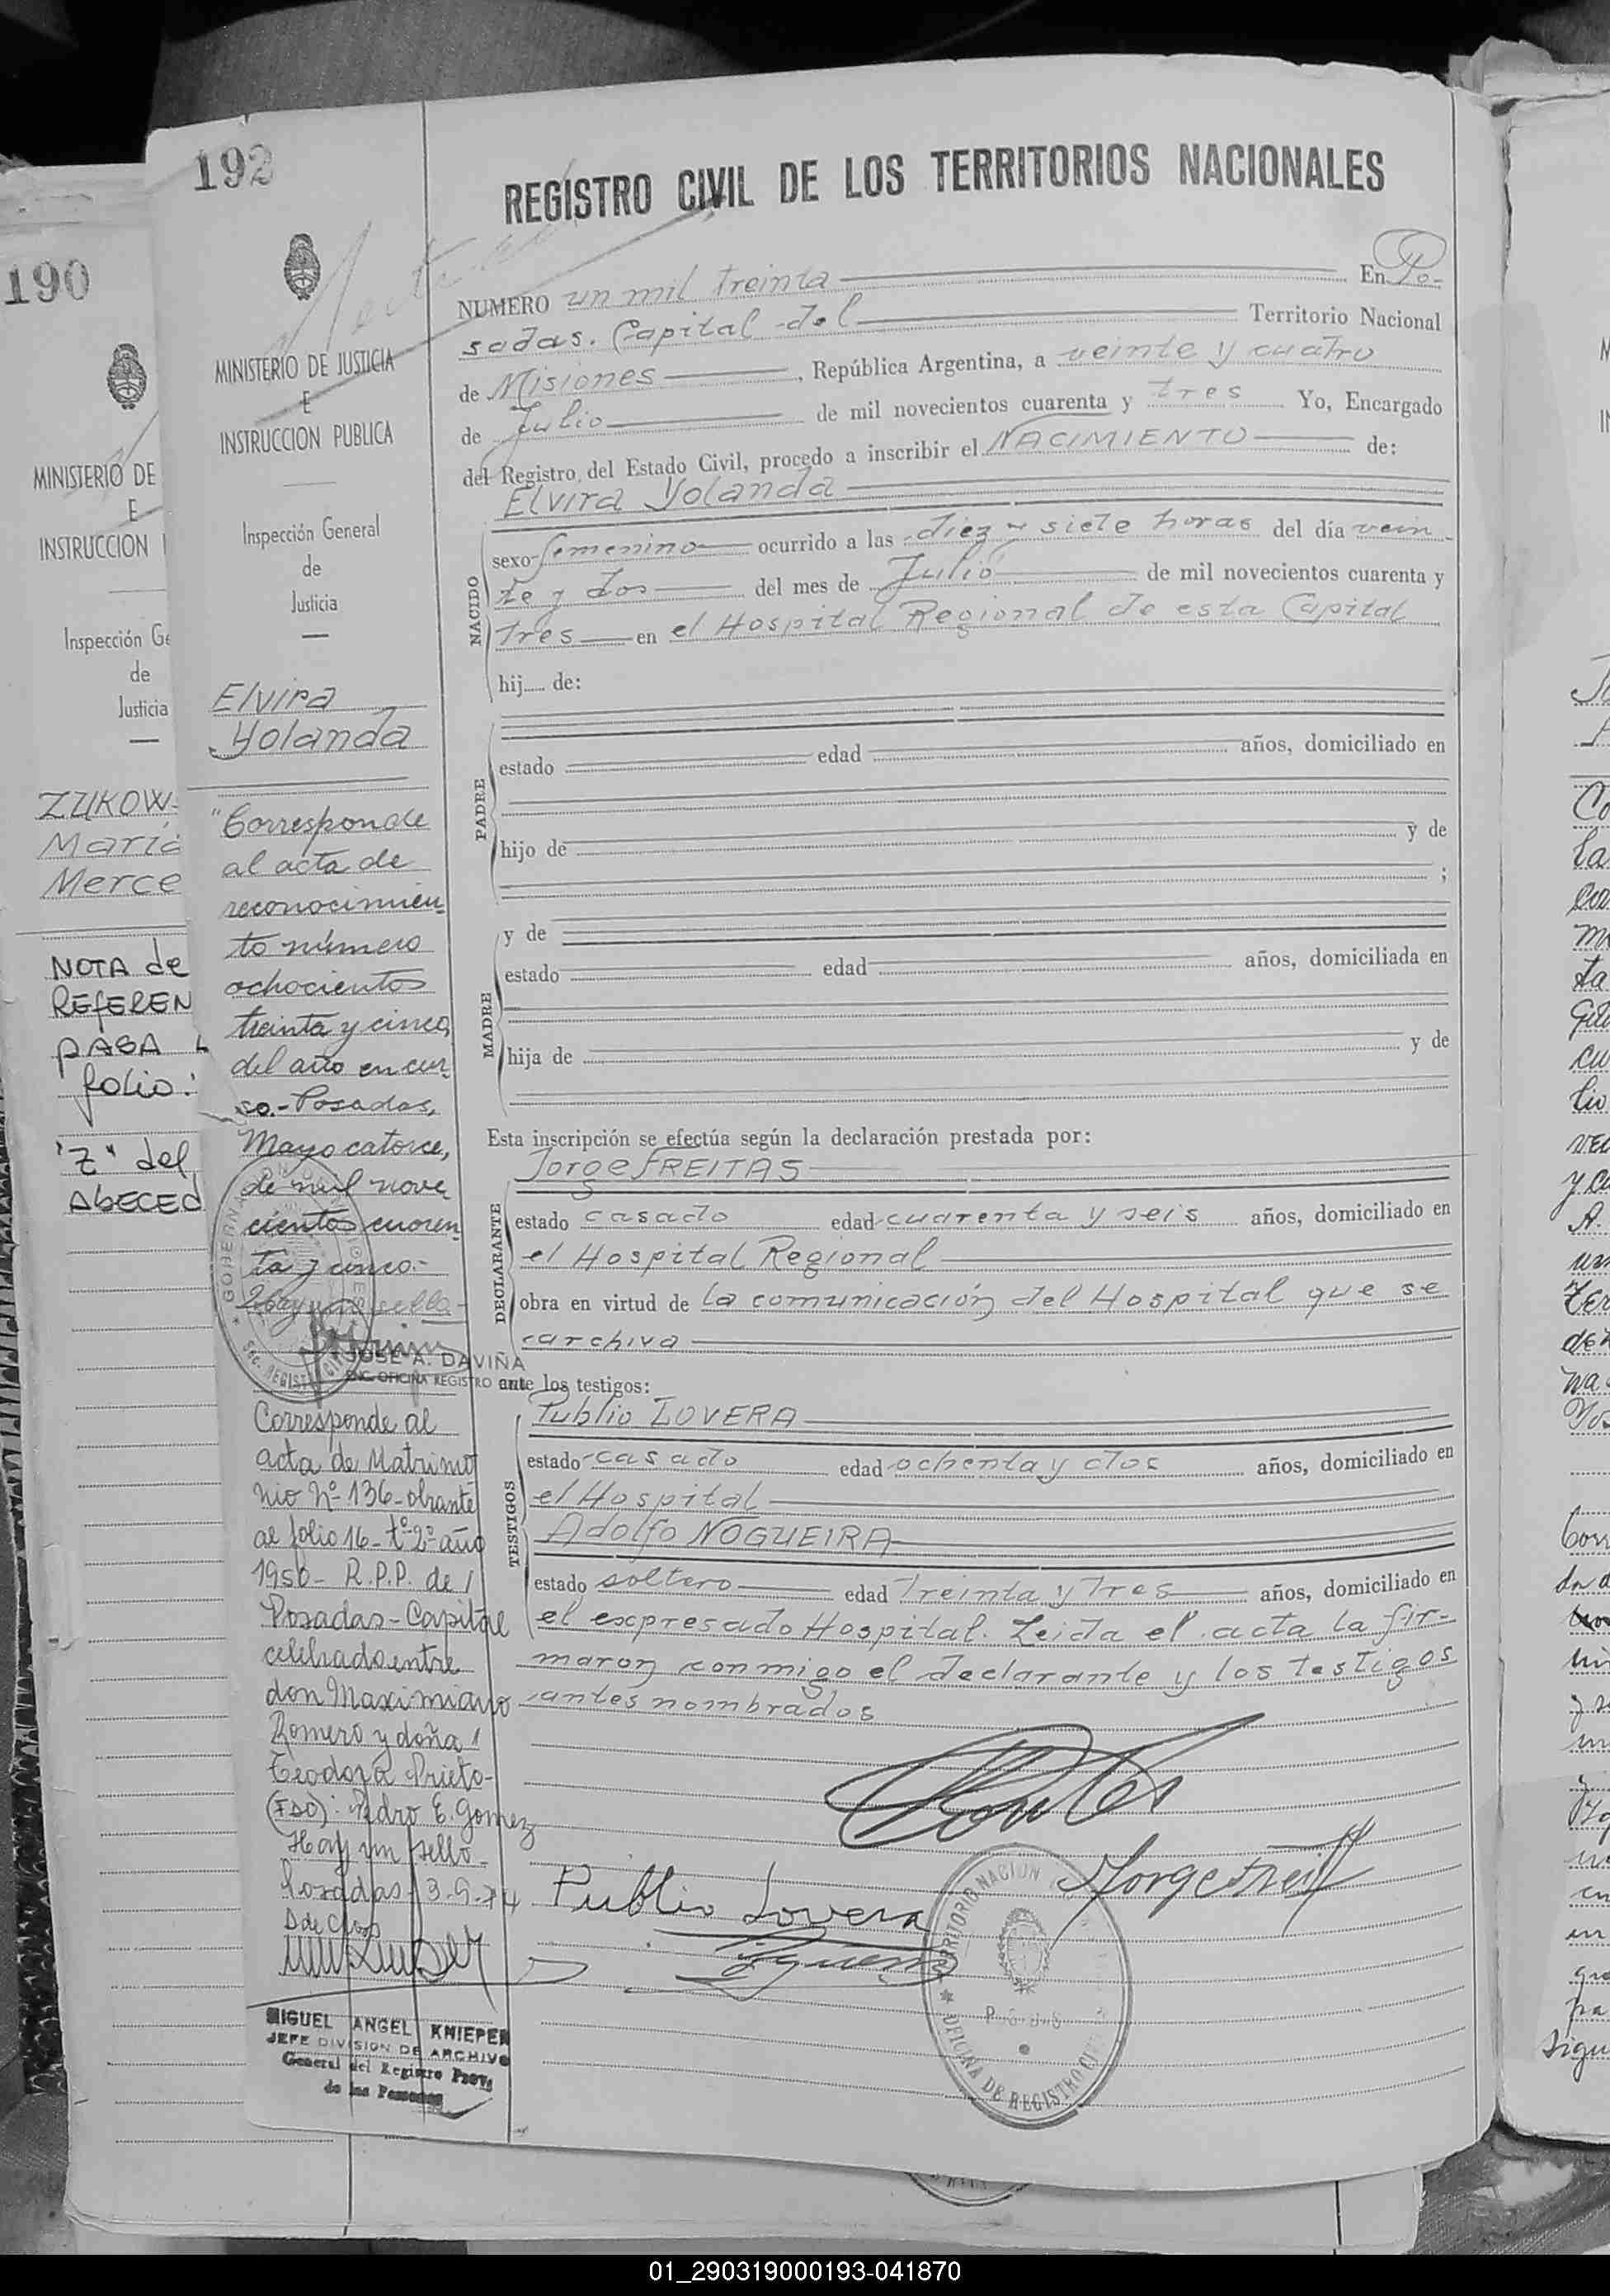 192
REGISTRO CIVIL DE LOS TERRITORIOS NACIONALES
NUMERO un mil treinta En Po-
sadas. Capital del Territorio Nacional
de Misiones, República Argentina, a veinte y cuatro
de Julio de mil novecientos cuarenta y tres Yo, Encargado
del Registro del Estado Civil, procedo a inscribir el NACIMIENTO de:
Elvira Yolanda
NACIDO
sexo femenino ocurrido a las diez y siete horas del día vein
te y dos del mes de Julio de mil novecientos cuarenta y
tres en el Hospital Regional de esta Capital
hij..... de:
PADRE
estado edad años, domiciliado en
hijo de y de
;
MADRE
y de
estado edad años, domiciliada en
hija de y de
Esta inscripción se efectúa según la declaración prestada por:
DECLARANTE
Jorge FREITAS
estado casado edad cuarenta y seis años, domiciliado en
el Hospital Regional
obra en virtud de la comunicación del Hospital que se
archiva
ante los testigos:
TESTIGOS
Publio LOVERA
estado casado edad ochenta y dos años, domiciliado en
el Hospital
Adolfo NOGUEIRA
estado soltero edad treinta y tres años, domiciliado en
el expresado Hospital. Leida el acta la fir-
maron conmigo el declarante y los testigos
antes nombrados
Publio Lovera
TERRITORIO NACION
OFICINA DE REGISTRO CIVIL
MINISTERIO DE JUSTICIA
E
INSTRUCCION PUBLICA
Inspección General
de
Justicia
Elvira
Yolanda
"Corresponde
al acta de
reconocimien
to número
ochocientos
treinta y cinco,
del año en cur-
so.- Posadas,
Mayo catorce,
de mil nove
cientos cuaren
ta y cinco.-
Hay un sello-
JOSE A. DAVIÑA
ENC. OFICINA REGISTRO
Corresponde al
acta de Matrimo
nio Nº 136 - obrante
al folio 16 - tº 2º año
1950 - R.P.P. de
Posadas - Capital
celebrado entre
don Maximiano
Romero y doña
Teodora Prieto-
(FDO): Pedro E. Gomez
Hay un sello-
Posadas 3-9-74
MIGUEL ANGEL KNIEPER
JEFE DIVISION DE ARCHIVO
General del Registro Prov.
de las Personas
190
MINISTERIO DE
E
INSTRUCCION
Inspección Ge
de
Justicia
ZUKOW-
María
Merce
NOTA de
REFEREN
PASA
folio:
"Z" del
ABECED
01_290319000193-041870